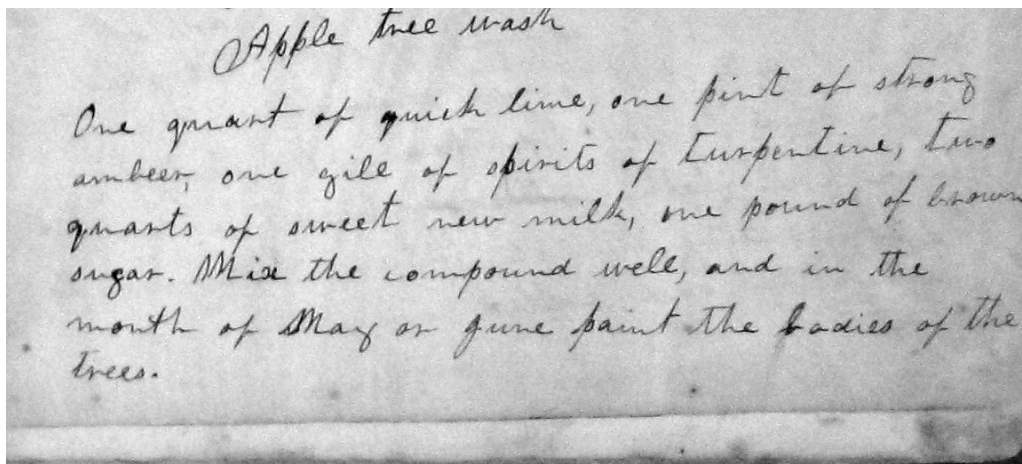 Apple tree wash
One quart of quick lime, one pint of strong
ambeer, one gill of spirits of turpentine, two
quarts of sweet new milk, one pound of brown
sugar. Mix the compound well, and in the
month of May or June paint the bodies of the
trees.